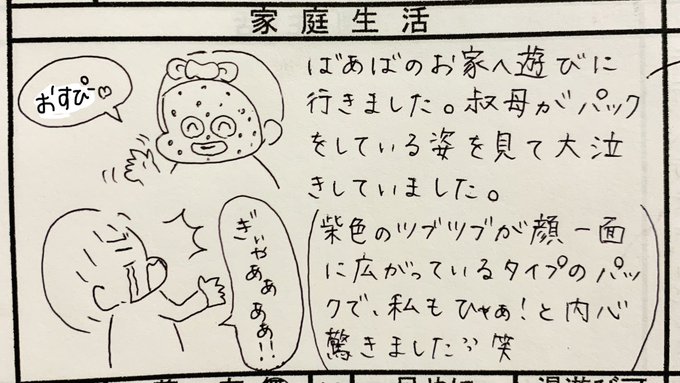 家庭生活
おすぴー♡
ばあばのお家へ遊びに
行きました。叔母がパック
をしている姿を見て大泣
きしていました。
ぎぃやあぁあぁ!!
(紫色のツブツブが顔一面
に広がっているタイプのパッ
クで、私もひゃぁ!と内心
驚きました笑)